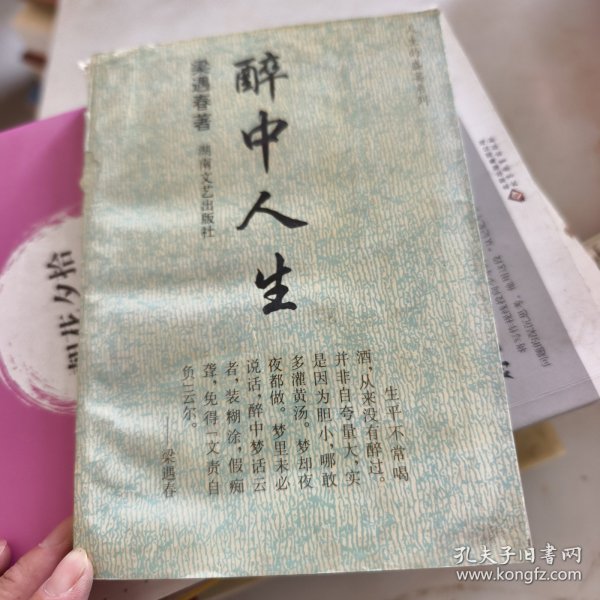 醉中人生
梁遇春著
湖南文艺出版社
生平不常喝
酒，从来没有醉过。
并非自夸量大，实
是因为胆小，哪敢
多灌黄汤。梦却夜
夜都做。梦里未必
说话，醉中梦话云
者，装糊涂，假痴
聋，免得“文责自
负”云尔。
——梁遇春
朝花夕拾
孔夫子旧书网
www.kongfz.com